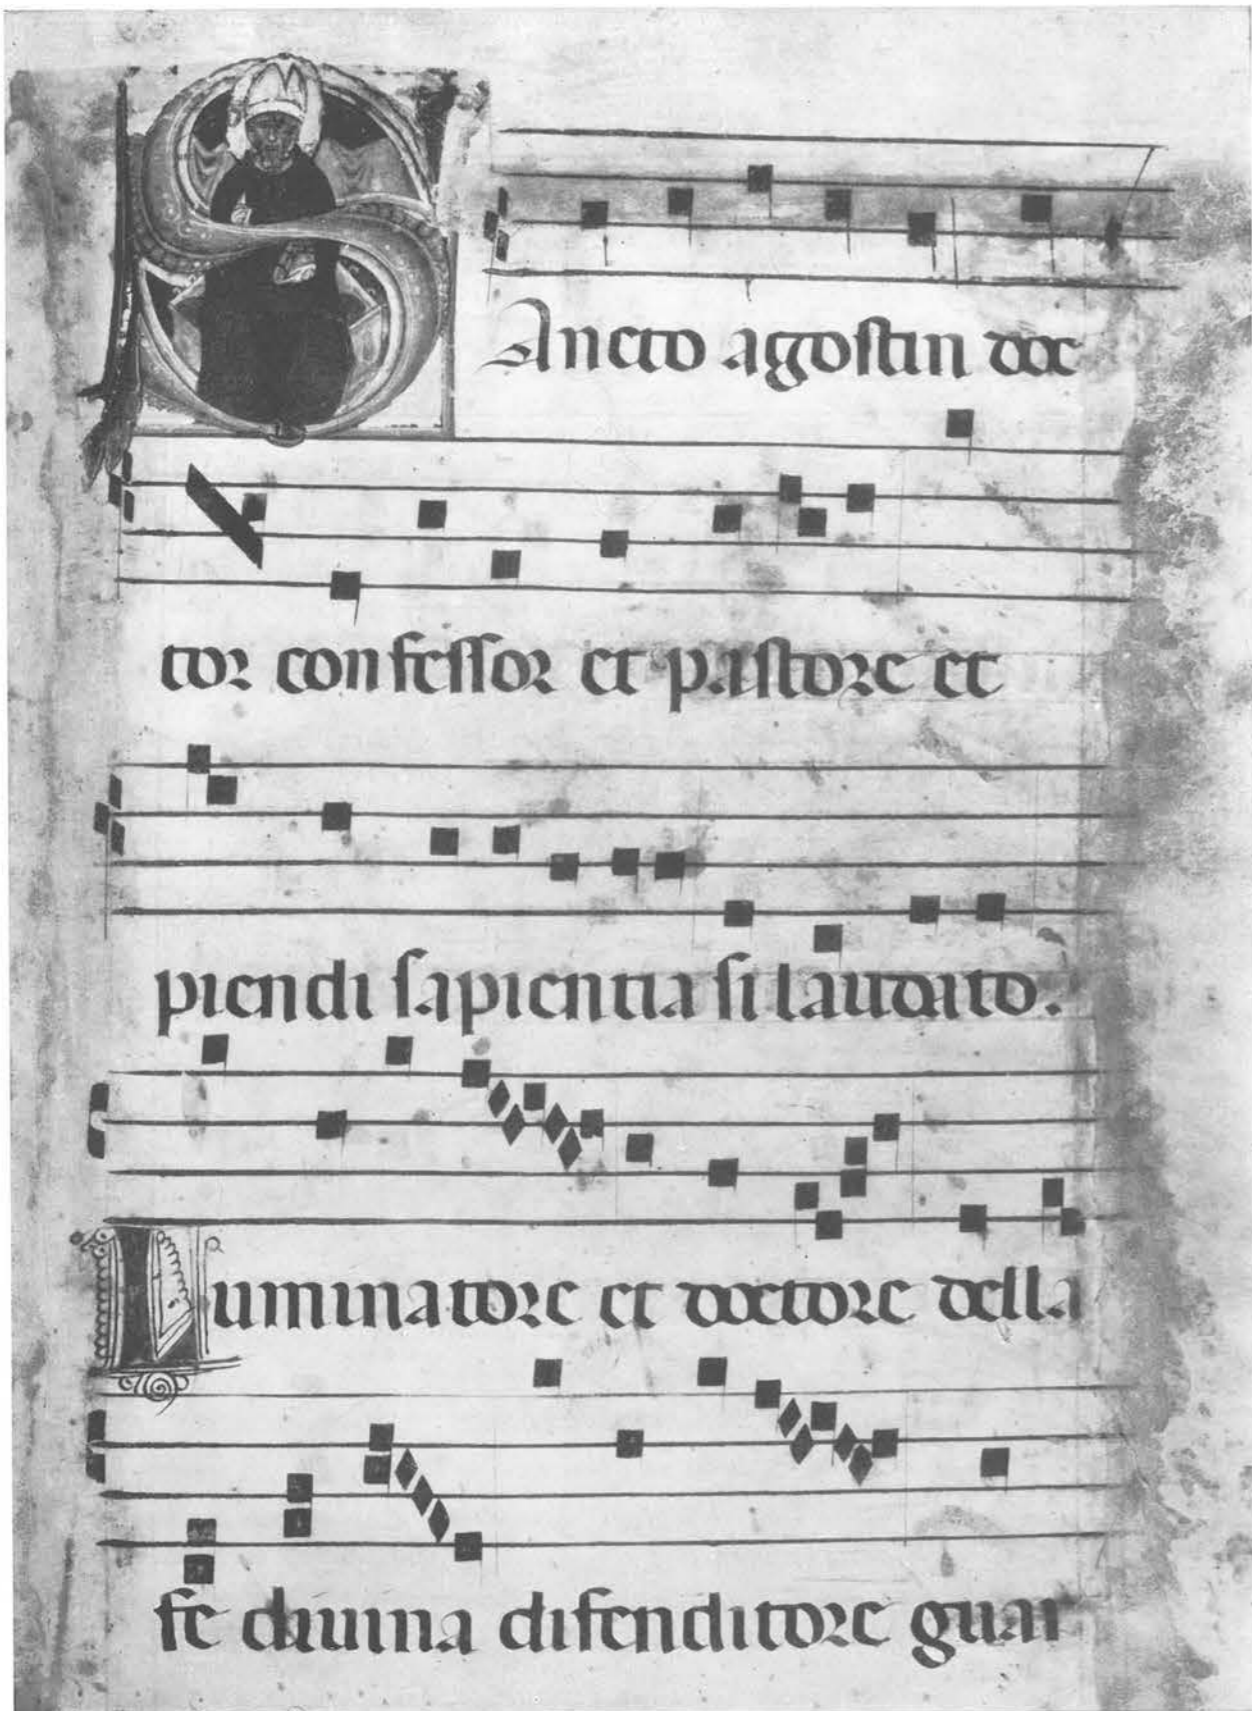 SAncto agostin doc
tor confessor et pastore et
piendi sapientia si laudato.
Luminatore et doctore della
fe diuina difenditore guai